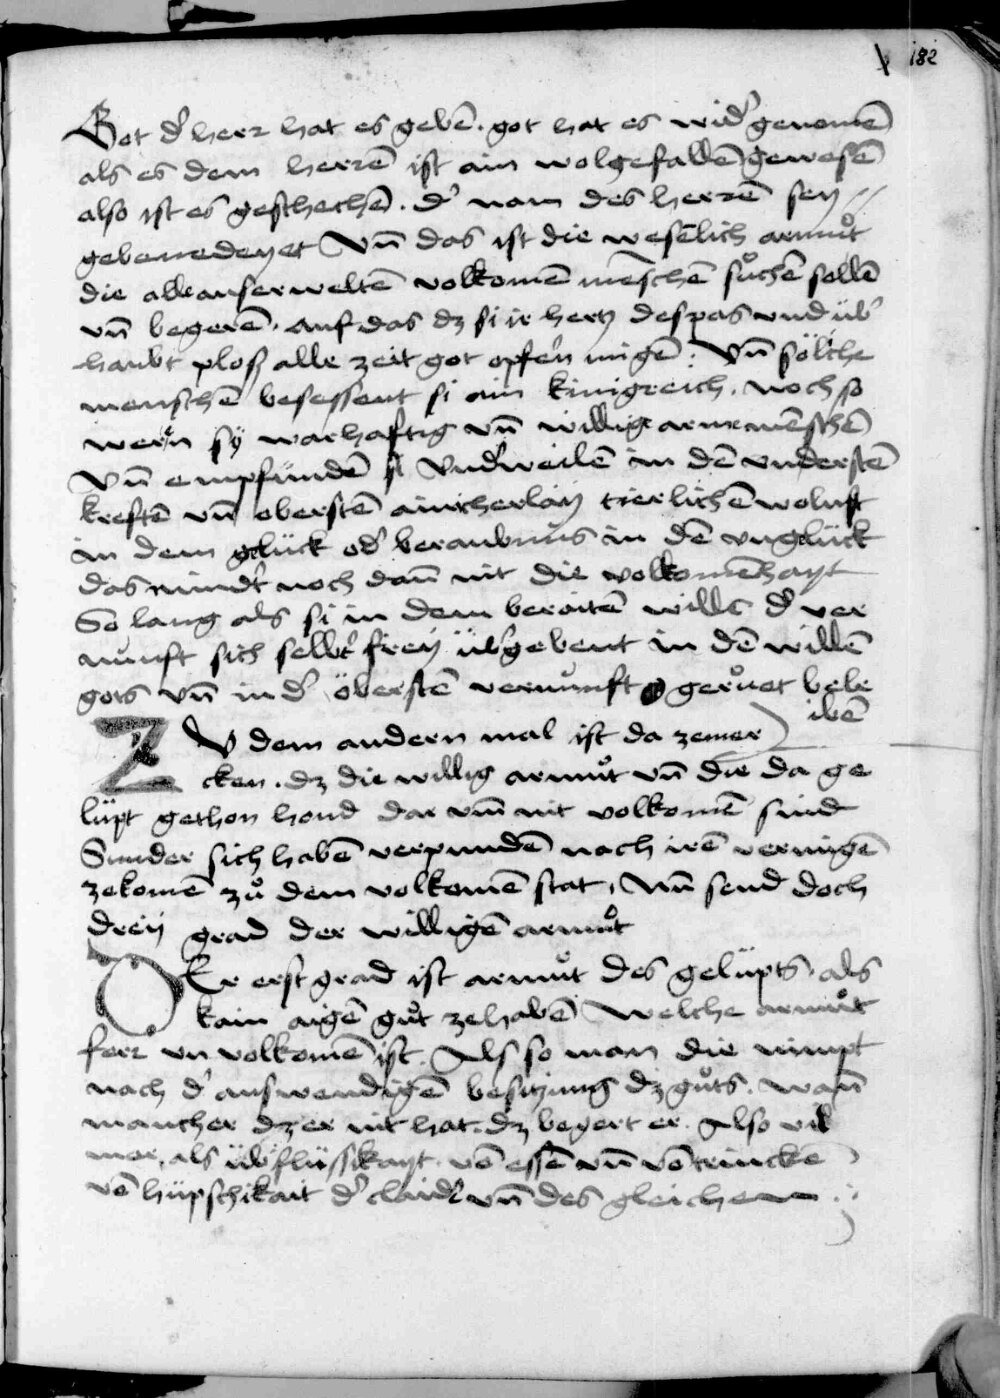 182
Got d' herr hat es gebē . got hat es wid' genomē
als es dem herrē ist ain wolgefallē gewesē
also ist es geschechē . d' nam des herrē sey
gebenedeyet Vn̄ das ist die wesēlich armůt
die alle auserweltē volkomē mēschē sůchē sollē
vn̄ begerē . auf das dz si ir hertz despas vnd üb'
haubt plosz alle zeit got opfern migē . Vn̄ sölche
menschē besessent si ain kinigreich . noch so
wern sÿ warhaftig vn̄ willig arme mēschē
Vn̄ empfundē si Vnd'weilē in dē vnderstē
kreftē vn̄ oberstē aincherlaÿ tierlichē wolust
in dem glück od' beraubnus in dē vnglück
das mindt noch dan̄ nit die volkomēhayt
So lang als si in dem beraitē willē d' ver
nunft sich selbt freÿ üb'gebent in dē willē
gots Vn̄ in d' öberstē vernunft gerůet bele
ibē
ZV dem andern mal ist da zemer
cken . dz die willig armůt vn̄ die da ge
lüpt gethon hond dar vm̄ nit volkomē sind
Sunder sich habē verpundē nach irē vermigē
zekomē zů dem volkomē stat , Nun̄ send doch
dreÿ grad der willigē armůt
DEr erst grad ist armůt des gelüpts . als
kain aigē gůt zehabē Welche armůt
ferr vn volkomē ist . Als so man die nimpt
nach d' auswendigē besitzung dz gůts . wan̄
mancher dz er nit hat . dz begert er . Also vil
mer , als üb'flüssikayt . vō essē vn̄ vō trinckē
vō hüpschikait d' claid' vn̄ des gleichen